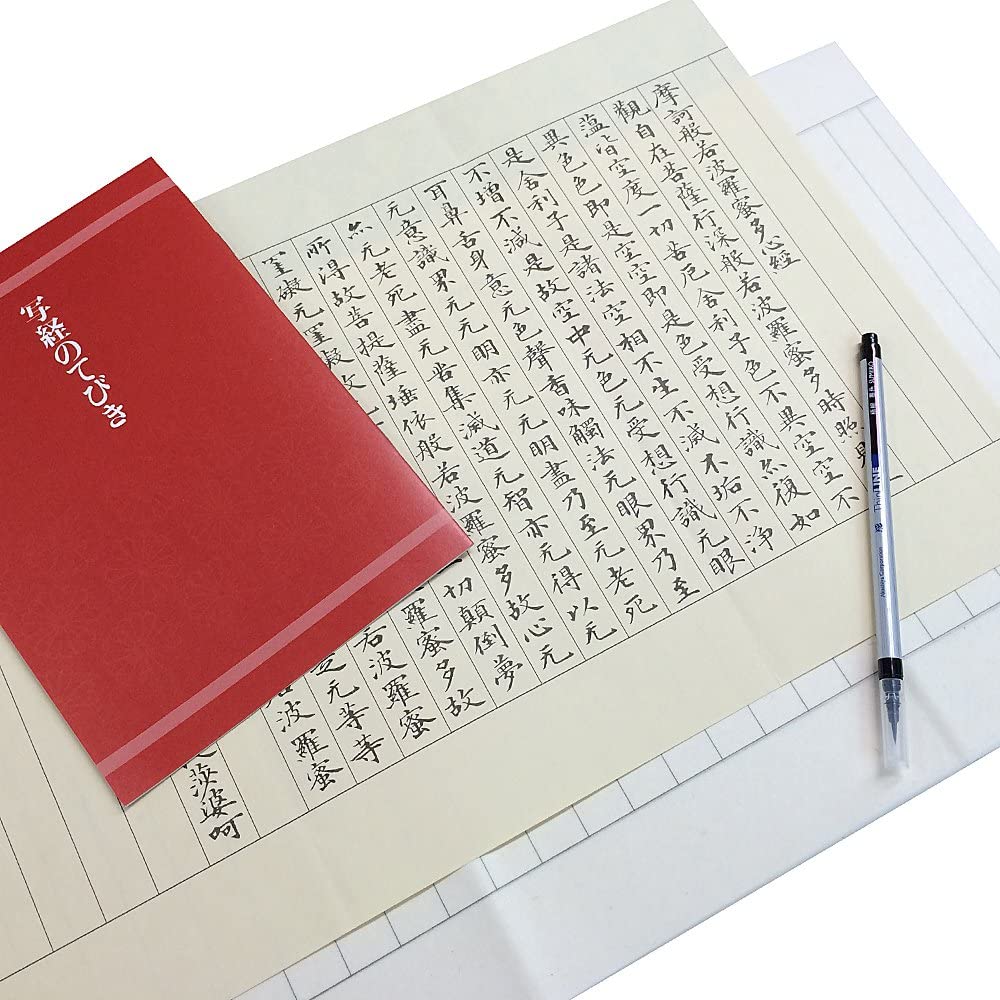 写経のてびき
摩訶般若波羅蜜多心經
觀自在菩薩行深般若波羅蜜多時照見
蘊皆空度一切苦厄舍利子色不異空空不
異色色即是空空即是色受想行識亦復如
是舍利子是諸法空相不生不滅不垢不淨
不增不減是故空中无色无受想行識无眼
耳鼻舌身意无色聲香味觸法无眼界乃至
无意識界无无明亦无无明盡乃至无老死
亦无老死盡无苦集滅道无智亦无得以无
所得故菩提薩埵依般若波羅蜜多故心无
罣礙无罣礙故 切顛倒夢
羅蜜多故
若波羅蜜
无等等
波羅蜜
莎婆呵
ThinLINE
Akashiya Corporation